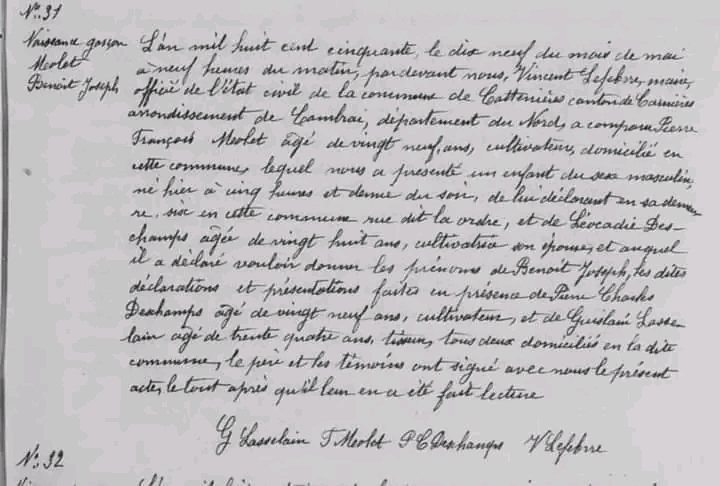 No. 31
Naissance garçon
Meolet
Benoît Joseph
L'an mil huit cent cinquante, le dix neuf du mois de mai
à neuf heures du matin, pardevant nous, Vincent Lefebvre, maire,
officié de l'état civil de la commune de Cattenières canton de Carnières
arrondissement de Cambrai, département du Nord, a comparu Pierre
François Meolet âgé de vingt neuf ans, cultivateur, domicilié en
cette commune, lequel nous a présenté un enfant du sexe masculin,
né hier à cinq heures et demie du soir, de lui déclarant en sa demeu
re, sise en cette commune rue dit la ordre, et de Léocadie Des-
champs âgée de vingt huit ans, cultivatrice son épouse, et auquel
il a déclaré vouloir donner les prénoms de Benoit Joseph, les dites
déclarations et présentations faites en présence de Pierre Charles
Deschamps âgé de vingt neuf ans, cultivateur, et de Guislain Lasse-
lain âgé de trente quatre ans, tisseur, tous deux domiciliés en la dite
commune, le père et les témoins ont signé avec nous le présent
acte, le tout après qu'il leur en a été fait lecture
G Lasselain F Meolet P C Deschamps V Lefebvre
No. 32